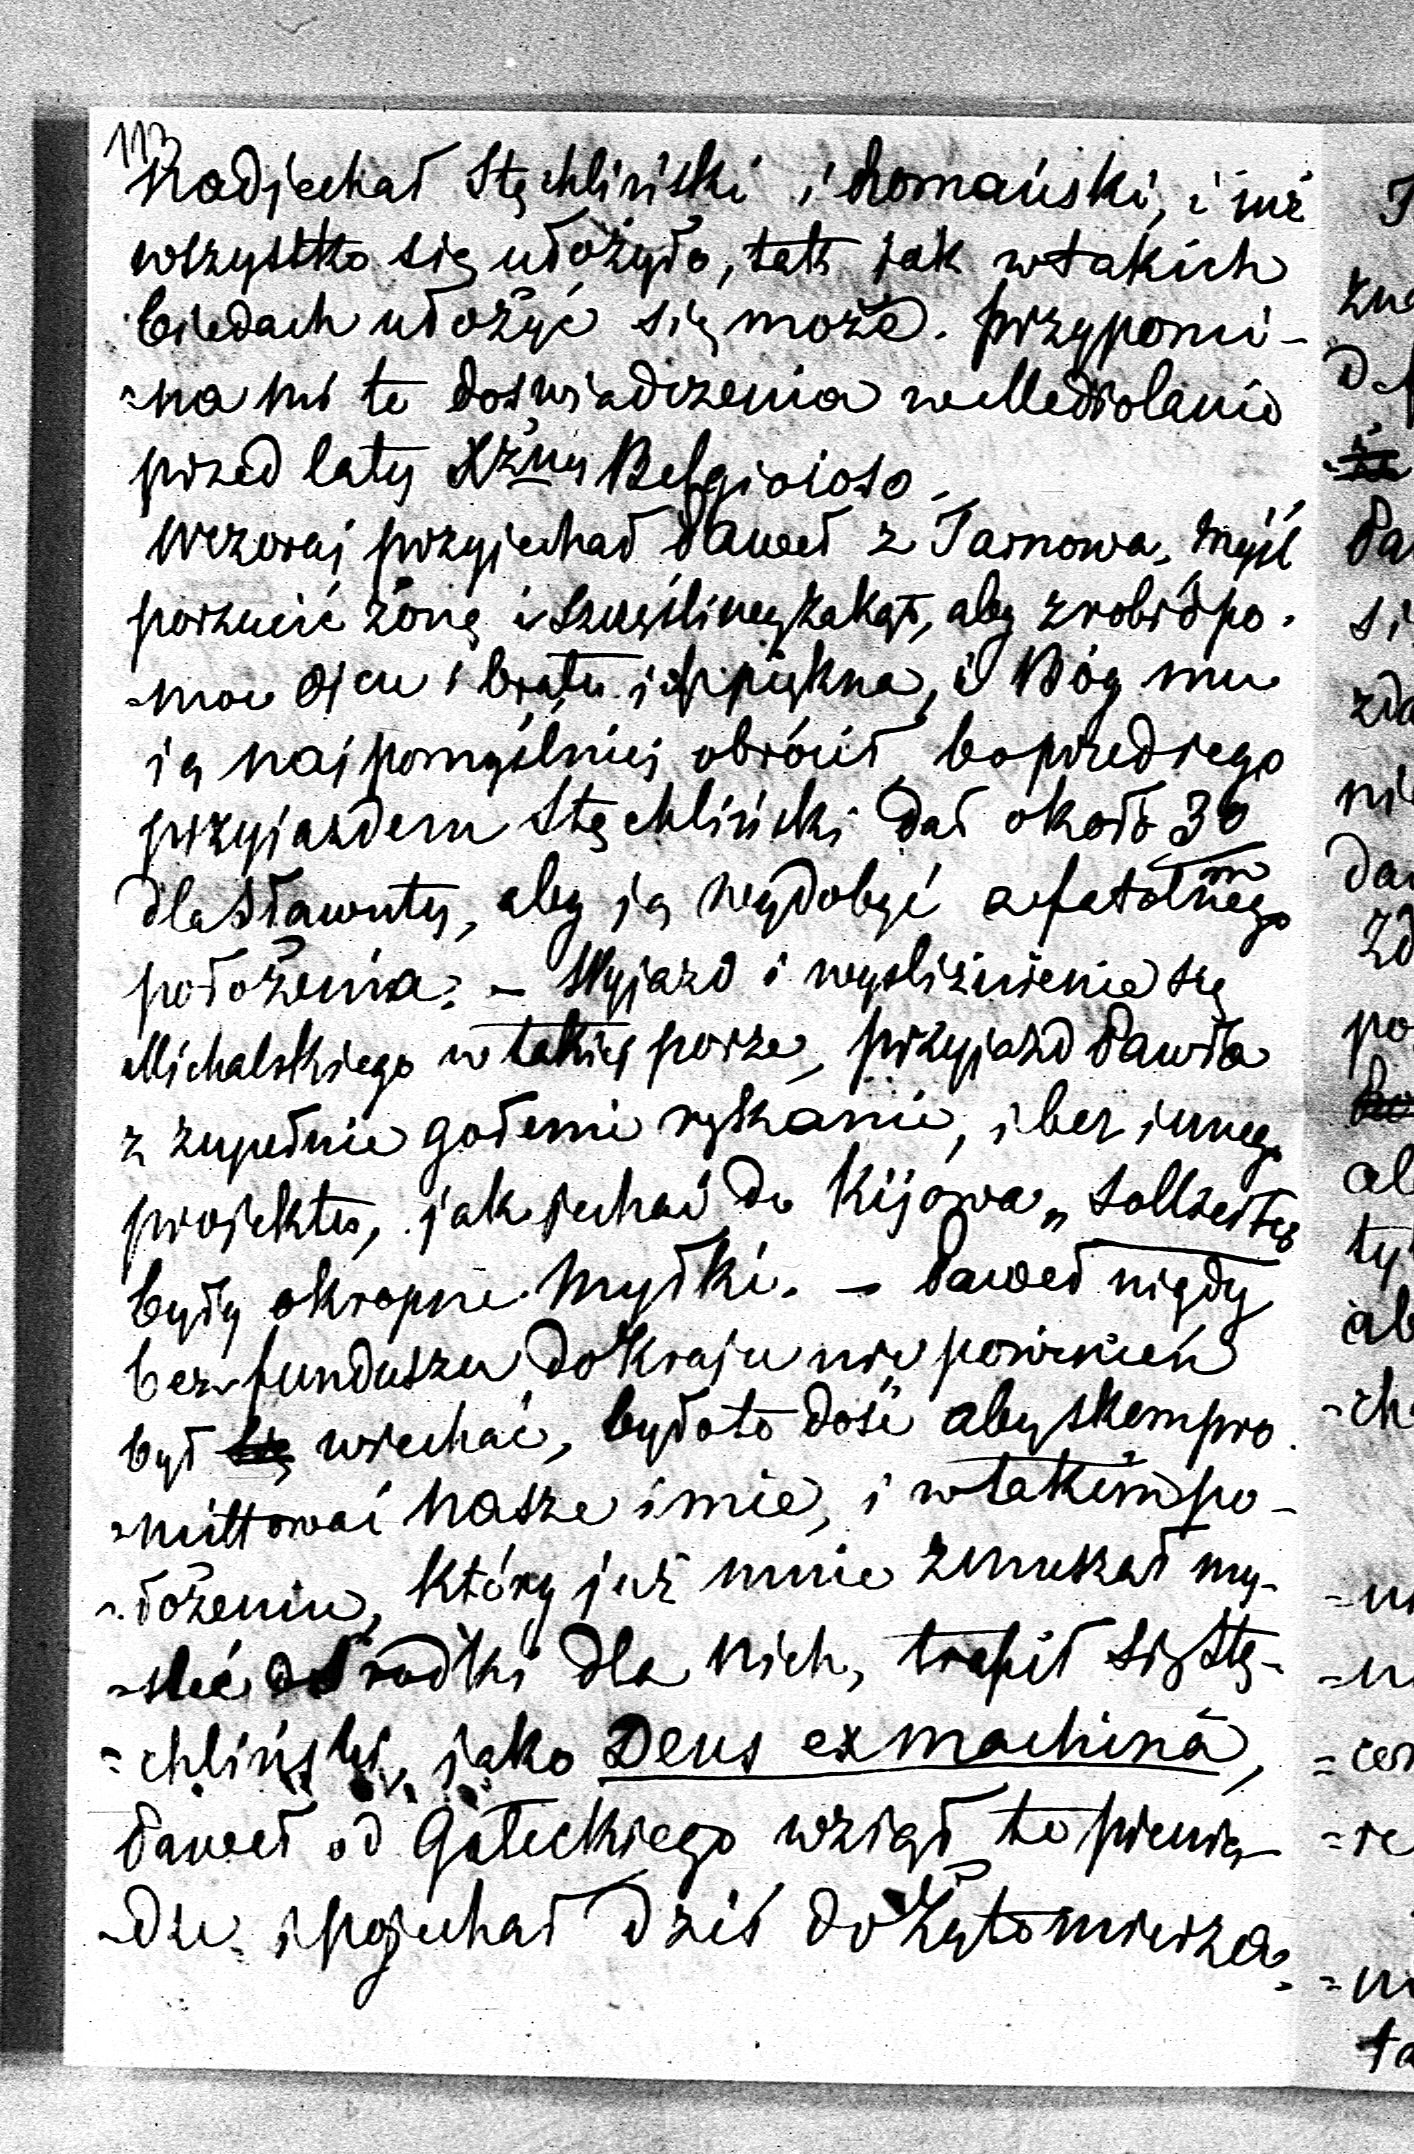 113
Nadjechał Stęchliński i Romański, i już
wszystko się ułożyło, tak jak w takich
biedach ułożyć się może. Przypomi-
=na mi te doświadczenia w Medjolanie
przed laty Xżny Belgioioso.
Wczoraj przyjechał Paweł z Tarnowa, myśl
porzucić żonę i szczęśliwy zakąt, aby zrobić po-
=moc Ojcu i bratu, jest piękna, i Bóg mu
ją najpomyślniej obrócił, bo przed jego
przyjazdem Stęchliński dał około 30
m
dla Sławuty, aby ją wydobyć z fatalnego
położenia. – Wyjazd i wyśliźnienie się
Michalskiego w takiej porze, przyjazd Pawła
z zupełnie gołemi rękami, i bez innego
projektu, jak jechać do Kijowa,
były okropne myłki. – Paweł nigdy
bez funduszu do Kraju nie powinien
był się wjechać, było to dość aby skompro-
=mittować nasze imie, i w takim po-
=łożeniu, który już mnie zmuszał my-
=śleć o środki dla nich, trafił się Stę-
=chliński, jako Deus ex machinâ,
Paweł od Gałeckiego wziął te pienią-
=dze, i pojechał dziś do Żytomierza.